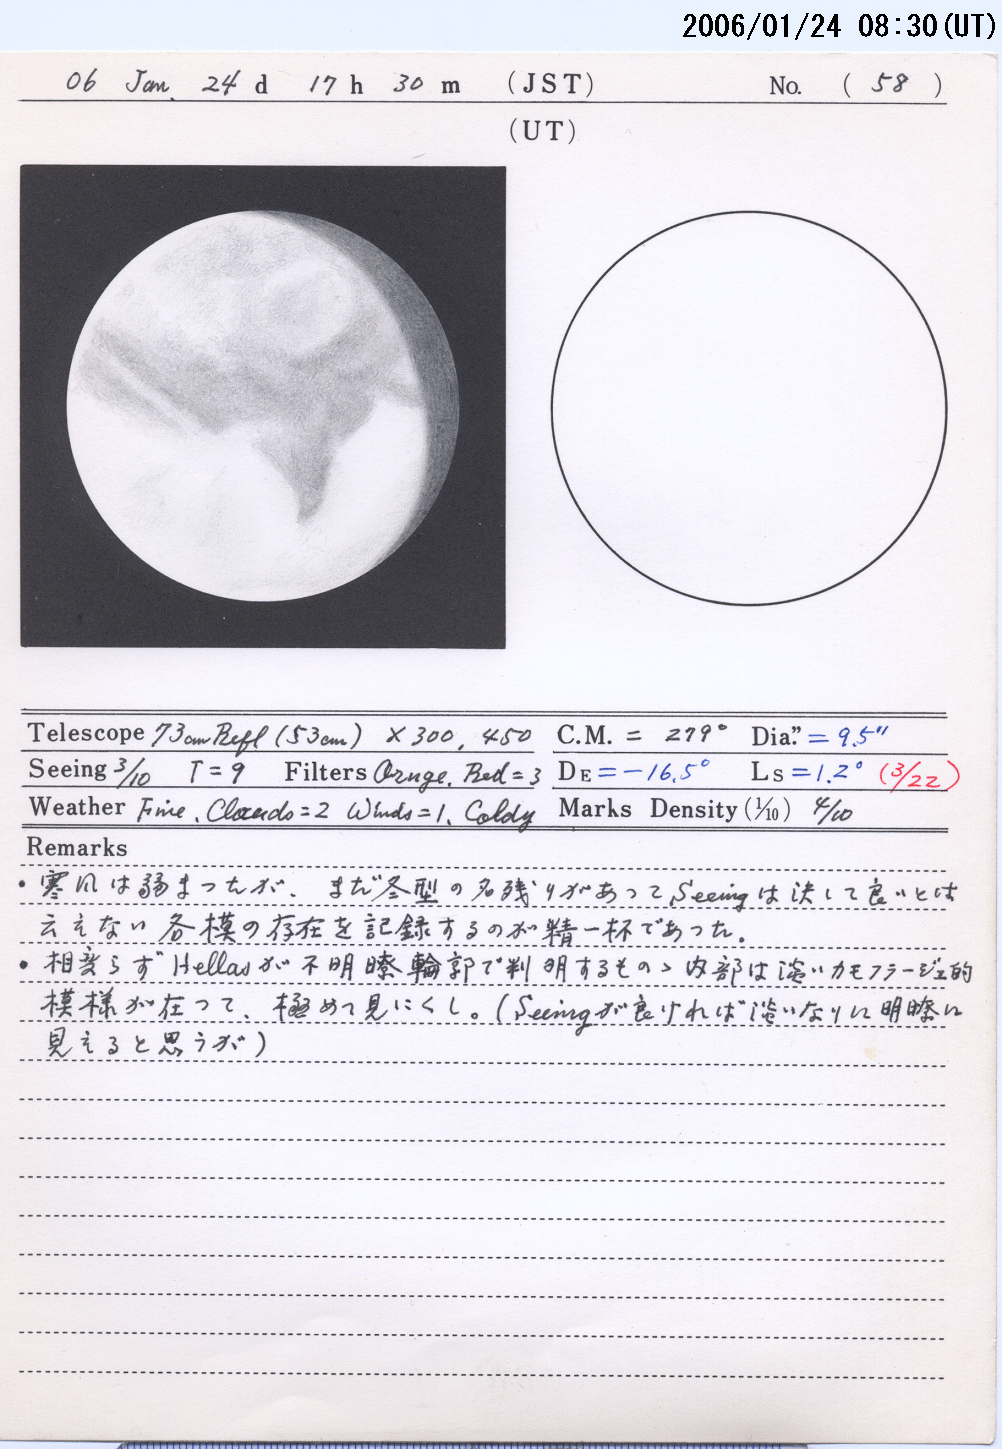 2006/01/24 08:30(UT)
06 Jan. 24 d 17 h 30 m (JST) No. ( 58 )
(UT)
Telescope 73cm Refl (53cm) × 300, 450 C.M. = 279° Dia." = 9.5"
Seeing 3/10 T = 9 Filters Orange, Red = 3 DE = -16.5° Ls = 1.2° (3/22)
Weather Fine, Clouds = 2 Winds = 1, Coldy Marks Density (1/10) 4/10
Remarks
・寒風は弱まったが、まだ冬型の名残りがあってSeeingは決して良いとは
云えない 各模の存在を記録するのが精一杯であった。
・相変らずHellasが不明瞭輪郭で判明するものゝ内部は淡いカモフラージュ的
模様が在って、極めて見にくし。(Seeingが良ければ淡いなりに明瞭に
見えると思うが)